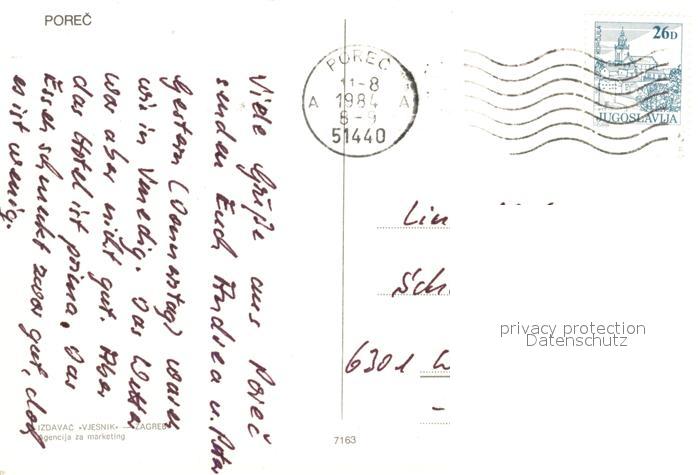 POREČ
Viele Grüße aus Poreč
senden Euch Andrea u. Peter
Gestern (Donnerstag) waren
wir in Venedig. Das Wetter
war aber nicht gut. Aber
das Hotel ist prima. Das
Essen schmeckt zwar gut, doch
es ist wenig.
IZDAVAČ »VJESNIK« — ZAGREB
Agencija za marketing
7163
POREČ
11-8
A 1984 A
8-9
51440
26D
JUGOSLAVIJA
6301
privacy protection
Datenschutz